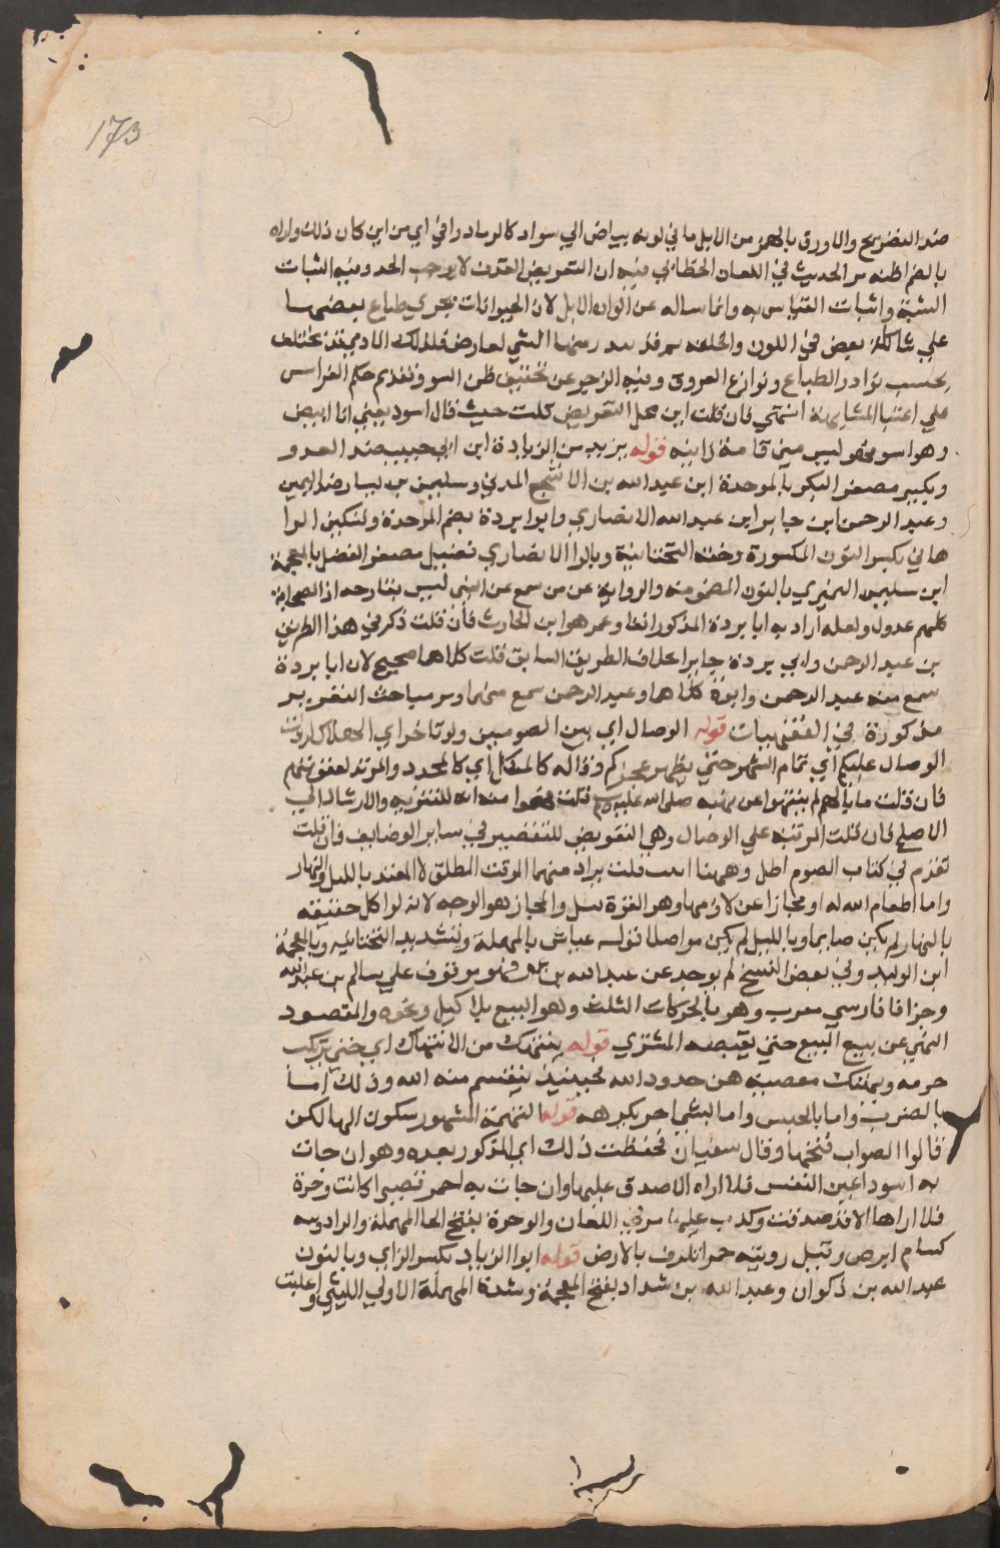 173
ضد التصريح والاورق بالهمز من الابل ما في لونه بياض الي سواد كالرماد واني اي من اين كان ذلك واراه
بالضم اظنه مر الحديث في اللعان الخطابي فيه ان التعريض القذف لا يوجب الحد وفيه اثبات
الشبه واثبات القياس به وانما ساله عن الوان الابل لان الحيوانات تجري طباع بعضها
علي شاكلة بعض في اللون والخلقة ثم قد يندر منها الشي لعارض فكذلك الادمي قد يختلف
بحسب نوادر الطباع ونوازع العروق وفيه الزجر عن تحقيق ظن السوء وتقديم حكم الفراش
علي اعتبار المشابهة انتهي فان قلت اين محل التعريض قلت حيث قال اسود يعني انا ابيض
وهو اسود فهو ليس مني قامة زانية قوله يزيد من الزيادة ابن ابي حبيب ضد العدو
وبكير مصغر البكر بالموحدة ابن عبد الله بن الاشج المدني وسليمن بن يسار ضد اليمين
وعبد الرحمن ابن جابر ابن عبد الله الانصاري وابوا بردة بضم الموحدة وتسكين الرا
هاني بكسر النون المكسورة وخفة التحتانية وبالرا الانصاري فضيل مصغر الفضل بالمعجمة
ابن سليمن النميري بالنون المضمومة والرواية عن من سمع عن النبي ليس بقادحه اذ الصحابة
كلهم عدول ولعله اراد به ابا بردة المذكور انفا وعمر هو ابن الحارث فان قلت ذكر في هذا الطريق
بن عبد الرحمن وابي بردة جابرا خلاف الطريق السابق قلت كلاهما صحيح لان ابا بردة
سمع منه عبد الرحمن وابوه كلاهما وعبد الرحمن سمع منهما ومر مباحث التعزير
مذكورة في الفقهيات قوله الوصال اي بين الصومين ولو تاخر اي الهلال لزدت
الوصال عليكم اي تمام الشهر حتي يظهر عجزكم وذاله كالمنكل اي كالمحدد والمرتد لعقوبتهم
فان قلت ما بالهم لم ينتهوا عن نهيه صلي الله عليه وسلم قلت فهموا منه انه للتنزيه والارشاد الي
الاصلح فان قلت المرتبة علي الوصال وهي التعويض للتقصير في ساير الوضايف فان قلت
تقدم في كتاب الصوم اظل وههنا ابيت قلت يراد منهما الوقت المطلق لا المقيد بالليل والنهار
واما اطعام الله له او مجازا عن لازمها وهو القوة والمجاز هو الوجه لانه لو اكل حقيقة
بالنهار لم يكن صايما وبالليل لم يكن مواصلا قوله عياش بالمهملة وتشديد التحتانية وبالمعجمة
ابن الوليد وفي بعض النسخ لم يوجد عن عبد الله بن عمر فهو موقوف علي سالم بن عبد الله
وجزافا فارسي معرب وهو بالحركات الثلث وهو البيع بلا كيل ونحوه والمقصود
النهي عن بيع المبيع حتي يقبضه المشتري قوله ينتهك من الانتهاك اي حتي يرتكب
حرمه ويهتك معصية هن حدود الله فحينيذ ينتقم منه الله وذلك اما
بالضرب واما بالحبس واما بشي اخر يكرهه قوله التهمة المشهور سكون الها لكن
قالوا الصواب فتحها وقال سفيان فحفظت ذلك اي المذكور بعده وهو ان جات
به اسود اعين النفس فلا اراه الا صدق عليها وان جات به احمر قصيرا كانه وحرة
فلا اراها الا قد صدقت وكذب عليها مر في اللعان والوحرة بفتح الحا المهملة والرا دويبه
كسام ابرص وقيل دويبة حمرا تلزق بالارض قوله ابوا الزياد بكسر الزاي وبالنون
عبد الله بن ذكوان وعبد الله بن شداد بفتح المعجمة وشدة المهملة الاولي الليثي واعلنت